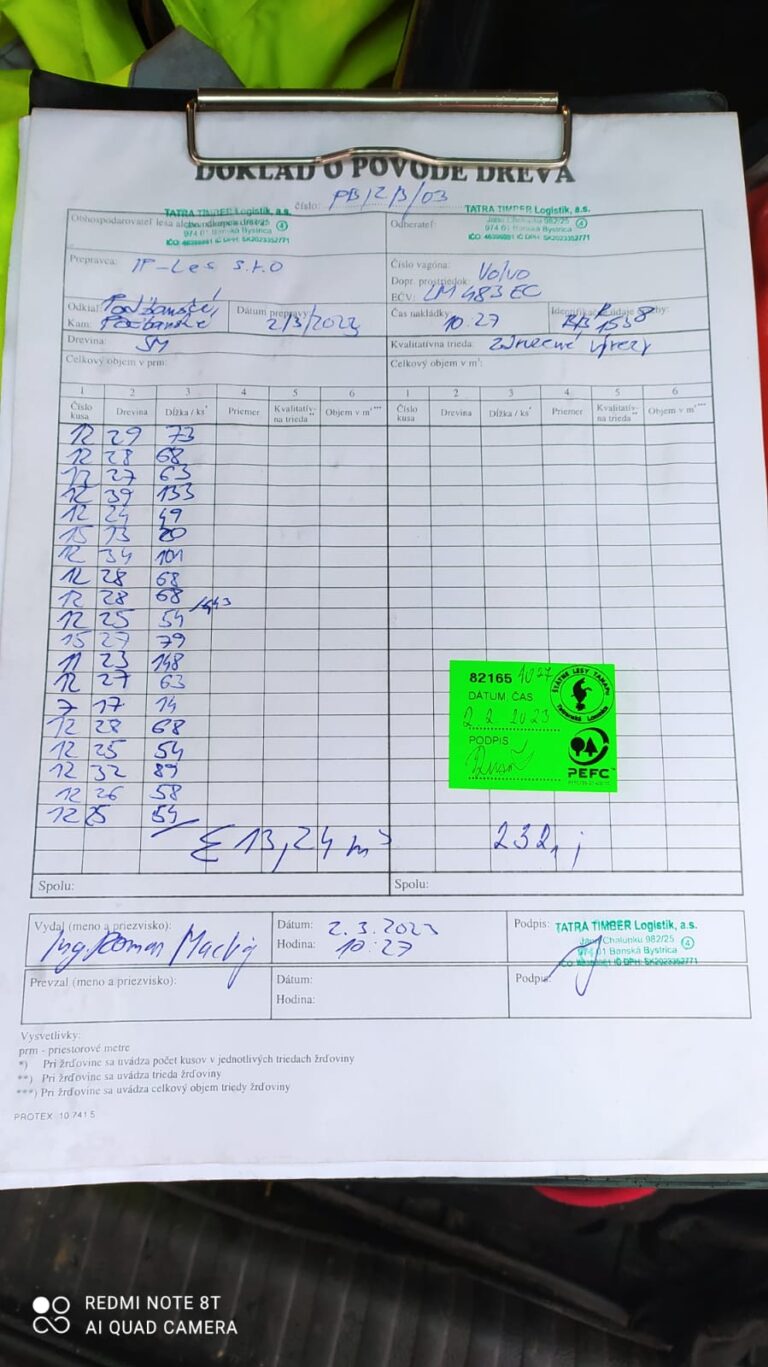 DOKLAD O PÔVODE DREVA
číslo: PB/2/3/03
Obhospodarovateľ lesa
TATRA TIMBER Logistik, a.s.
974 01 Banská Bystrica
IČO: IČ DPH: SK2023352771
Odberateľ:
TATRA TIMBER Logistik, a.s.
Jána Chalupku 982/25
974 01 Banská Bystrica
IČO: IČ DPH: SK2023352771
Prepravca: IP-Les s.r.o
Číslo vagóna:
Dopr. prostriedok: Volvo
EČV: LM 483 EC
Odkiaľ: Podbanské,
Kam: Podbanské
Dátum prepravy: 2/3/2023
Čas nakládky: 10:27
Drevina: SM
Kvalitatívna trieda: združené výrezy
Celkový objem v prm:
Celkový objem v m³:
1 2 3 4 5 6 1 2 3 4 5 6
Číslo kusa Drevina Dĺžka / ks* Priemer Kvalitatív- na trieda** Objem v m³*** Číslo kusa Drevina Dĺžka / ks* Priemer Kvalitatív- na trieda** Objem v m³***
12 29 73
12 28 68
12 27 63
12 39 133
12 24 49
15 13 20
12 34 101
12 28 68
12 28 68
12 25 54
15 27 79
11 23 148
12 27 63
7 17 14
12 28 68
12 25 54
12 32 89
12 26 58
12 25 54
Σ 13,24 m³ 232
82165 1027
DÁTUM, ČAS
2 2 2023
PODPIS
ŠTÁTNE LESY TANAPU
Tatranská Lomnica
PEFC™
Spolu: Spolu:
Vydal (meno a priezvisko): Ing. Roman
Dátum: 2.3.2023
Hodina: 10:27
Podpis:
TATRA TIMBER Logistik, a.s.
Jána Chalupku 982/25
974 01 Banská Bystrica
IČO: IČ DPH: SK2023352771
Prevzal (meno a priezvisko):
Dátum:
Hodina:
Podpis:
Vysvetlivky:
prm - priestorové metre
*) Pri žrďovine sa uvádza počet kusov v jednotlivých triedach žrďoviny
**) Pri žrďovine sa uvádza trieda žrďoviny
***) Pri žrďovine sa uvádza celkový objem triedy žrďoviny
PROTEX 10 741 5
REDMI NOTE 8T
AI QUAD CAMERA